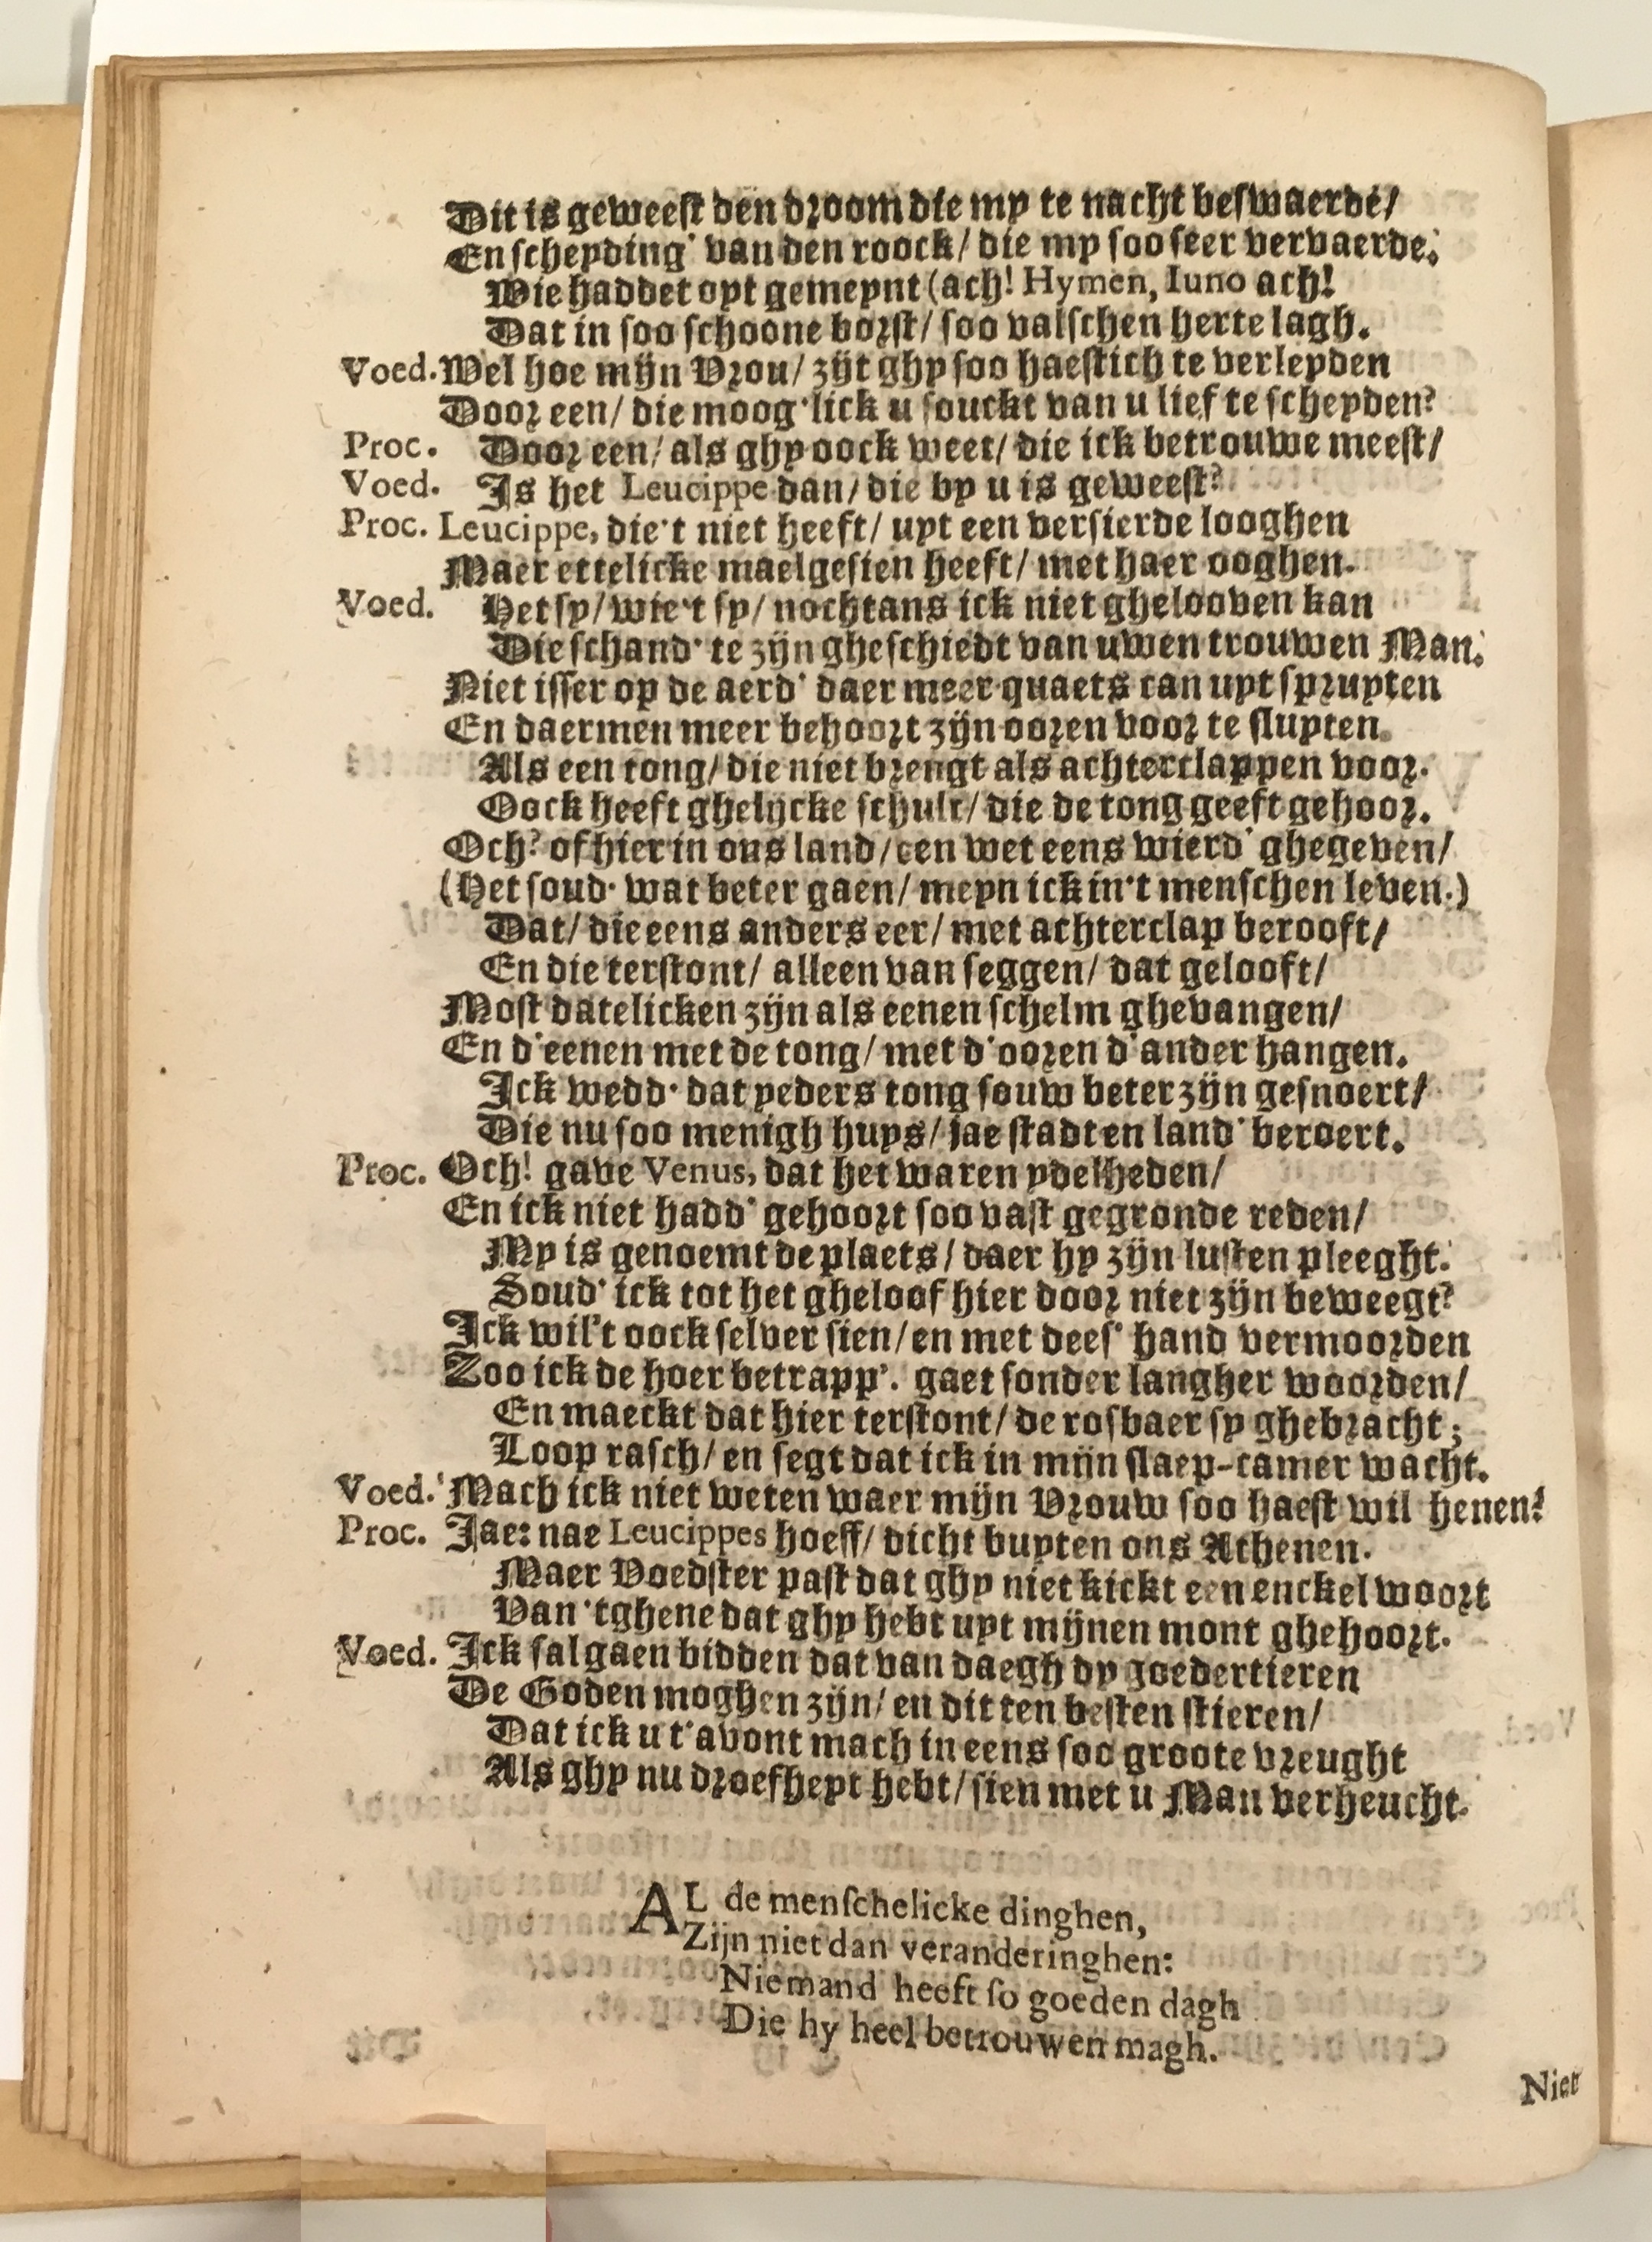 Dit is geweest den droom die my te nacht beswaerde/
En scheyding' van den roock/ die my soo seer vervaerde.
Wie haddet oyt gemeynt (ach! Hymen, Iuno ach!
Dat in soo schoone borst/ soo valschen herte lagh.
Voed. Wel hoe mijn Vrou/ zijt ghy soo haestich te verleyden
Door een/ die moog'lick u souckt van u lief te scheyden?
Proc. Door een/ als ghy oock weet/ die ick betrouwe meest/
Voed. Is het Leucippe dan/ die by u is geweest?
Proc. Leucippe, die't niet heeft/ uyt een versierde looghen
Maer ettelicke mael gesien heeft/ met haer ooghen.
Voed. Het sy/ wie't sy/ nochtans ick niet ghelooven kan
Die schand' te zijn gheschiedt van uwen trouwen Man.
Niet isser op de aerd' daer meer quaets can uyt spruyten
En daermen meer behoort zijn ooren voor te sluyten.
Als een tong/ die niet brengt als achterclappen voor.
Oock heeft ghelijcke schult/ die de tong geeft gehoor.
Och? of hier in ons land/ een wet eens wierd' ghegeven/
(Het soud' wat beter gaen/ meyn ick in't menschen leven.)
Dat/ die eens anders eer/ met achterclap berooft/
En die terstont/ alleen van seggen/ dat gelooft/
Most datelicken zijn als eenen schelm ghevangen/
En d'eenen met de tong/ met d'ooren d'ander hangen.
Ick wedd' dat yeders tong souw beter zijn gesnoert/
Die nu soo menigh huys/ jae stadt en land' beroert.
Proc. Och! gave Venus, dat het waren ydelheden/
En ick niet hadd' gehoort soo vast gegronde reden/
My is genoemt de plaets/ daer hy zijn lusten pleeght.
Soud' ick tot het gheloof hier door niet zijn beweegt?
Ick wil't oock selver sien/ en met dees' hand vermoorden
Zoo ick de hoer betrapp'. gaet sonder langher woorden/
En maeckt dat hier terstont/ de rosbaer sy ghebracht;
Loop rasch/ en segt dat ick in mijn slaep-camer wacht.
Voed. Mach ick niet weten waer mijn Vrouw soo haest wil henen?
Proc. Jae: nae Leucippes hoeff/ dicht buyten ons Athenen.
Maer Voedster past dat ghy niet kickt een enckel woort
Van 'tghene dat ghy hebt uyt mijnen mont ghehoort.
Voed. Ick sal gaen bidden dat van daegh dy goedertieren
De Goden moghen zijn/ en dit ten besten stieren/
Dat ick u t'avont mach in eens soo groote vreught
Als ghy nu droefheyt hebt/ sien met u Man verheucht.
AL de menschelicke dinghen,
Zijn niet dan veranderinghen:
Niemand heeft so goeden dagh
Die hy heel betrouwen magh.
Niet